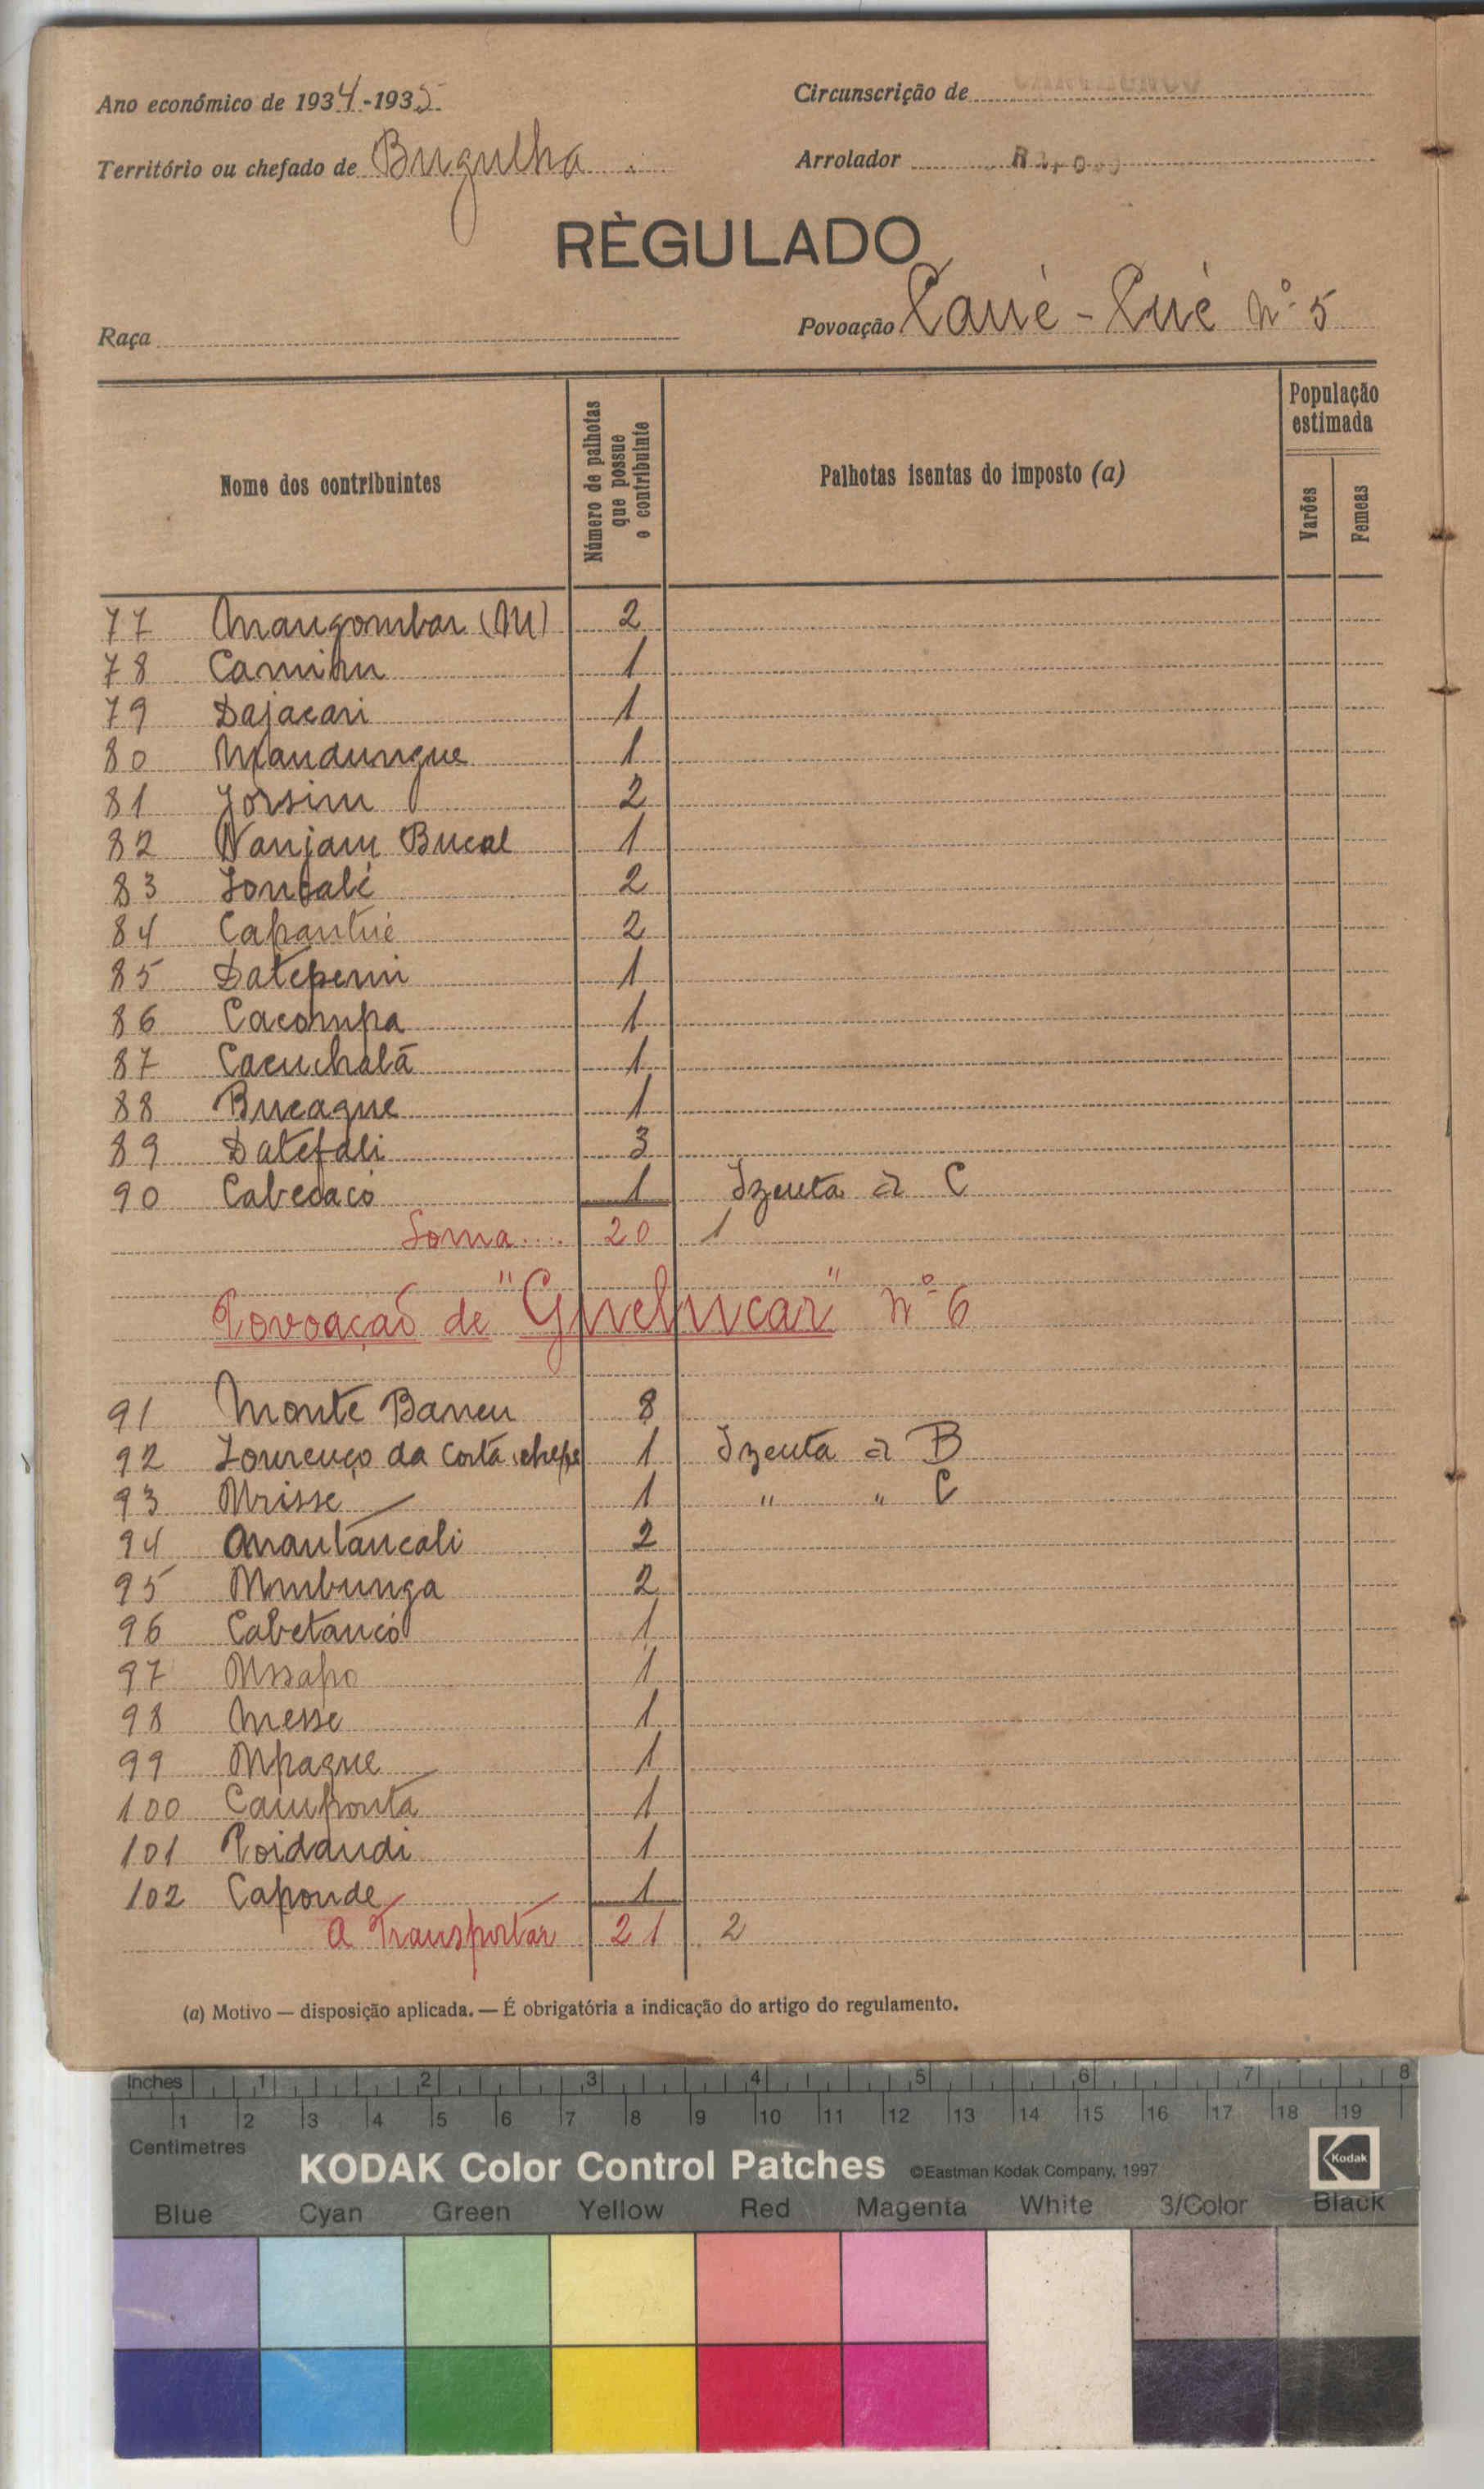 Ano económico de 1934-1935
Circunscrição de
Território ou chefado de Bugulha
Arrolador
RÈGULADO
Raça
Povoação Paué-Pué Nº 5
Nome dos contribuintes
Número de palhotas que possue o contribuinte
Palhotas isentas do imposto (a)
População estimada
Varões
Femeas
77 Mangombar (M) 2
78 Caminu 1
79 Dajacari 1
80 Mandungue 1
81 Jorsim 2
82 Nanjam Bucal 1
83 2
84 Capantué 2
85 Dateperin 1
86 Cacompa 1
87 Cacuchalã 1
88 Bucague 1
89 Datefali 3
90 Cabedacó 1 Izenta à C
Soma.... 20 1
Povoação de "Guelucar" Nº 6
91 Monte Baneu 8
92 Lourenço da Costa chefe 1 Izenta à B
93 Mrisse 1 " " C
94 Mantancali 2
95 Mmbunga 2
96 Cabetancó 1
97 Mssapo 1
98 Messe 1
99 Mpague 1
100 Camponta 1
101 Poidandi 1
102 Caponde 1
A Transportar 21 2
(a) Motivo — disposição aplicada. — É obrigatória a indicação do artigo do regulamento.
Inches 1 2 3 4 5 6 7 8
1 2 3 4 5 6 7 8 9 10 11 12 13 14 15 16 17 18 19
Centimetres
KODAK Color Control Patches ©Eastman Kodak Company, 1997 Kodak
Blue Cyan Green Yellow Red Magenta White 3/Color Black